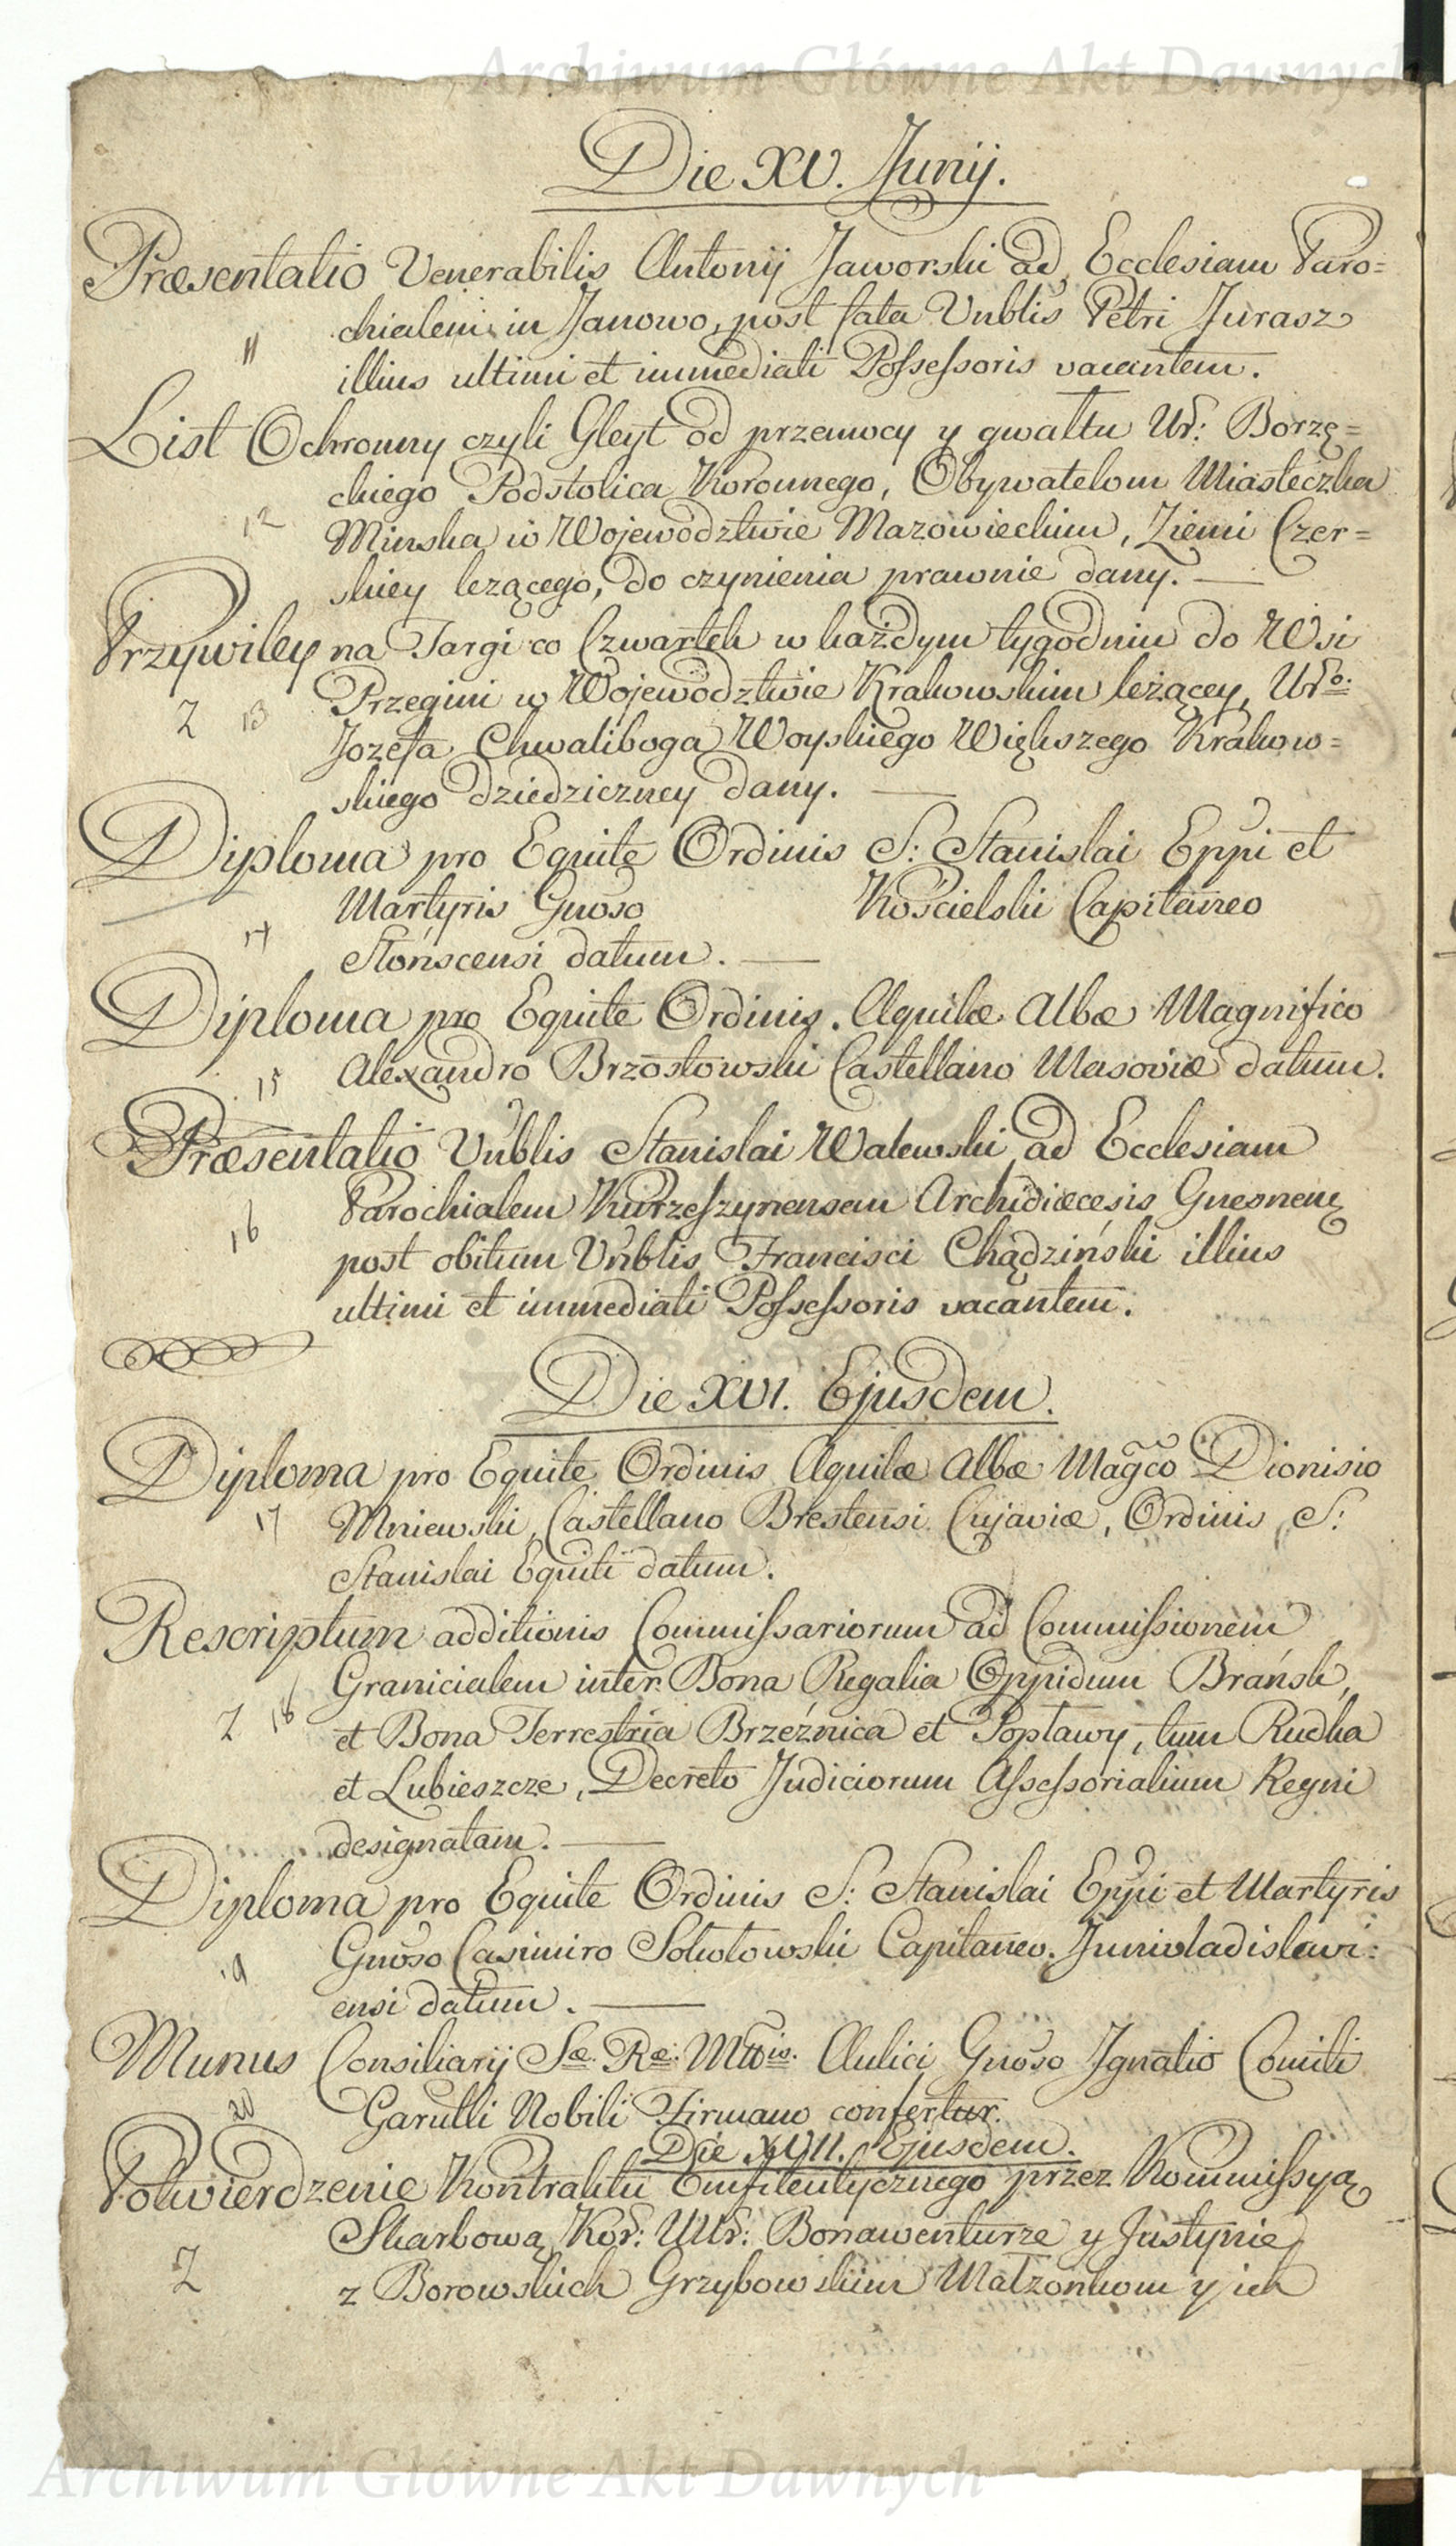 Archiwum Główne Akt Dawnych
Die XV. Junij.
Præsentatio Venerabilis Antonij Jaworski ad Ecclesiam Paro=
chialem in Janowo, post fata Vnblis Petri Jurasz
11
illius ultimi et immediati Possessoris vacantem.
List Ochronny czyli Gleyt od przemocy y gwałtu Ur: Borzę=
ckiego Podstolica Koronnego, Obywatelom Miasteczka
12
Minska w Wojewodztwie Mazowieckim, Ziemi Czer=
skiey lezącego, do czynienia prawnie dany.
Przywiley na Targi co Czwartek w każdym tygodniu do Wsi
Przegini w Wojewodztwie Krakowskim leżącey, Uro.
Z 13
Jozefa Chwaliboga Woyskiego Większego Krakow=
skiego dziedziczney dany.
Diploma pro Equite Ordinis S: Stanislai Eppi et
Martyris Gnoso Kościelski Capitaneo
14
Słonscensi datum.
Diploma pro Equite Ordinis Aquilæ Albæ Magnifico
Alexandro Brzostowski Castellano Masoviæ datum.
15
Præsentatio Vnblis Stanislai Walewski ad Ecclesiam
Parochialem Kurzeszynensem Archidiæcesis Gnesnen
16
post obitum Vnblis Francisci Chądziński illius
ultimi et immediati Possessoris vacantem.
Die XVI. Ejusdem.
Diploma pro Equite Ordinis Aquilæ Albæ Magco Dionisio
17
Mniewski, Castellano Brestensi Cujaviæ, Ordinis S:
Stanislai Equiti datum.
Rescriptum additionis Commissariorum ad Commissionem
Granicialem inter Bona Regalia Oppidum Brańsk,
Z 18
et Bona Terrestria Brzeźnica et Popławy, tum Rudka
et Lubieszcze, Decreto Judiciorum Assessorialium Regni
designatam.
Diploma pro Equite Ordinis S: Stanislai Eppi et Martyris
Gnoso Casimiro Sokołowski Capitaneo Junivladislavi=
19
ensi datum.
Munus Consiliarij Sæ. Ræ. Mttis. Aulici Gnoso Ignatio Comiti
20
Garulli Nobili Firmano confertur.
Die XVII. Ejusdem.
Potwierdzenie Kontraktu Emfiteutycznego przez Kommissyą
Skarbową Kor: UUr: Bonawenturze y Justynie
Z
z Borowskich Grzybowskim Małzonkom y ich
Archiwum Główne Akt Dawnych